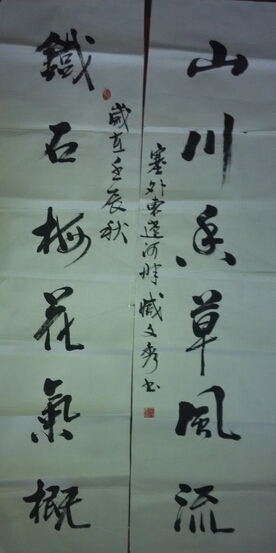 山川香草風流
塞外東遼河畔臧文秀书
歲在壬辰秋
鐵石梅花氣概